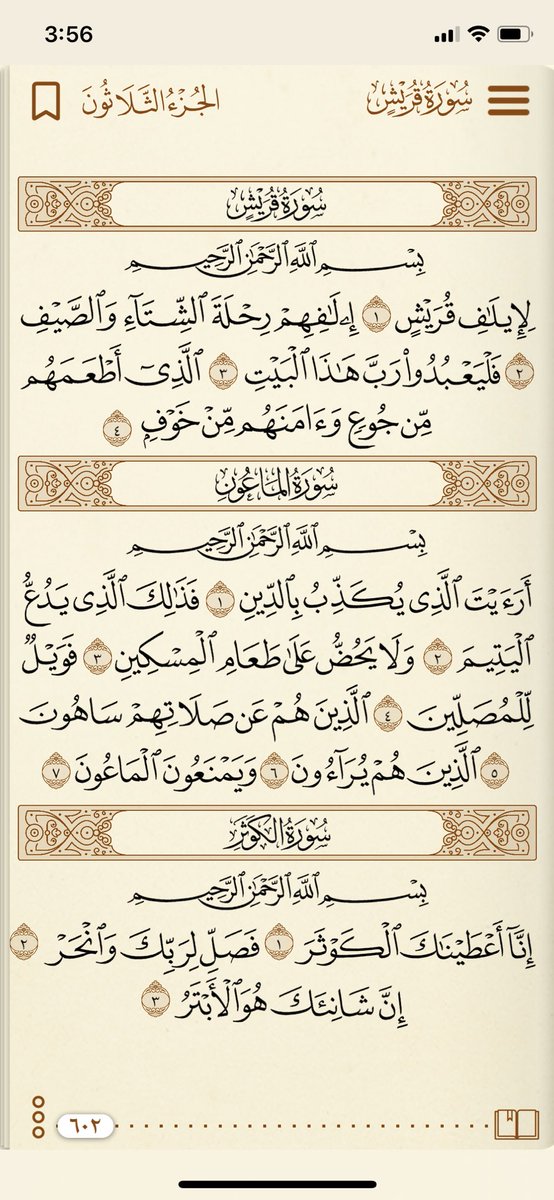 3:56
سُورَةُ قُرَيْشٍ الجُزْءُ الثَّلَاثُونَ
سُورَةُ قُرَيْشٍ
بِسْمِ ٱللَّهِ ٱلرَّحْمَٰنِ ٱلرَّحِيمِ
لِإِيلَٰفِ قُرَيْشٍ ١ إِۦلَٰفِهِمْ رِحْلَةَ ٱلشِّتَآءِ وَٱلصَّيْفِ
٢ فَلْيَعْبُدُوا۟ رَبَّ هَٰذَا ٱلْبَيْتِ ٣ ٱلَّذِىٓ أَطْعَمَهُم
مِّن جُوعٍ وَءَامَنَهُم مِّنْ خَوْفٍۭ ٤
سُورَةُ المَاعُونِ
بِسْمِ ٱللَّهِ ٱلرَّحْمَٰنِ ٱلرَّحِيمِ
أَرَءَيْتَ ٱلَّذِى يُكَذِّبُ بِٱلدِّينِ ١ فَذَٰلِكَ ٱلَّذِى يَدُعُّ
ٱلْيَتِيمَ ٢ وَلَا يَحُضُّ عَلَىٰ طَعَامِ ٱلْمِسْكِينِ ٣ فَوَيْلٌ
لِّلْمُصَلِّينَ ٤ ٱلَّذِينَ هُمْ عَن صَلَاتِهِمْ سَاهُونَ
٥ ٱلَّذِينَ هُمْ يُرَآءُونَ ٦ وَيَمْنَعُونَ ٱلْمَاعُونَ ٧
سُورَةُ الكَوْثَرِ
بِسْمِ ٱللَّهِ ٱلرَّحْمَٰنِ ٱلرَّحِيمِ
إِنَّآ أَعْطَيْنَٰكَ ٱلْكَوْثَرَ ١ فَصَلِّ لِرَبِّكَ وَٱنْحَرْ ٢
إِنَّ شَانِئَكَ هُوَ ٱلْأَبْتَرُ ٣
٦٠٢